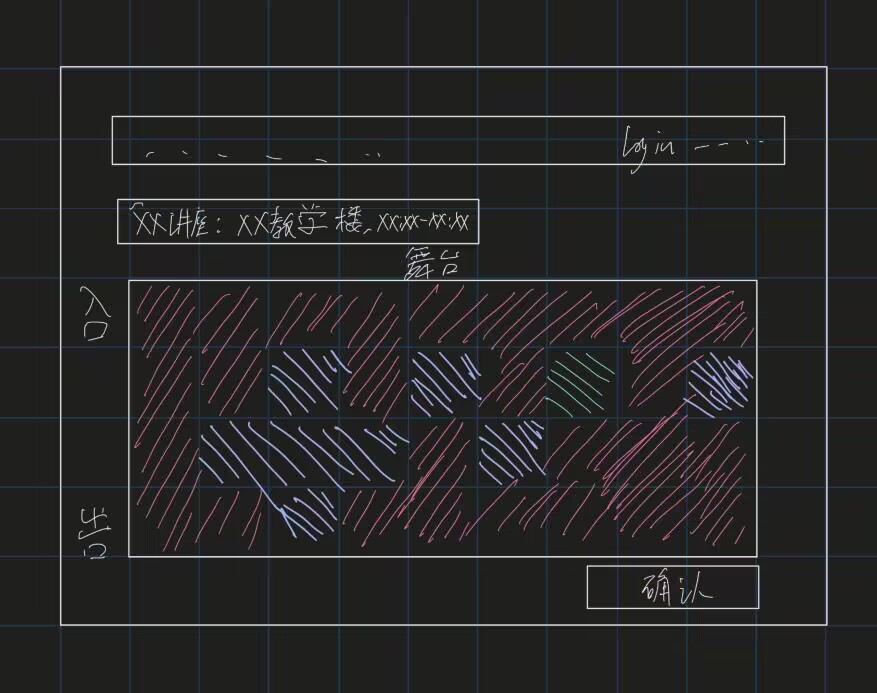 Login
XX讲座：XX教学楼，xx:xx-xx:xx
舞台
入口
出口
确认